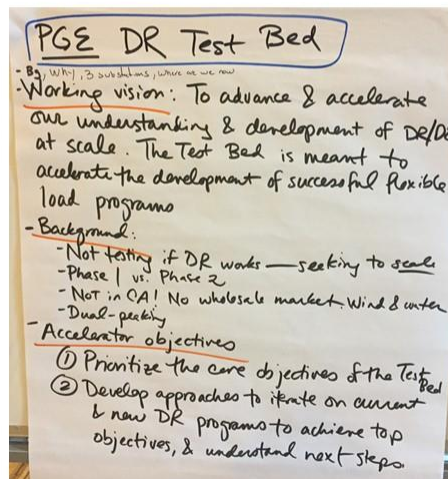 PGE DR Test Bed
- Bg, Why, 3 substations, where are we now
- Working vision: To advance & accelerate
our understanding & development of DR/
at scale. The Test Bed is meant to
accelerate the development of successful flexible
load programs
- Background:
- Not testing if DR works — seeking to scale
- Phase 1 vs. Phase 2
- NOT in CA! No wholesale market. Wind & water
- Dual-peaking
- Accelerator objectives
① Prioritize the core objectives of the Test Bed
② Develop approaches to iterate on current
& new DR programs to achieve top
objectives, & understand next steps.